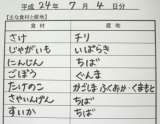 平成 24年 7月 4日分
【主な食材と産地】
食材 産地
さけ チリ
じゃがいも いばらき
にんじん ちば
ごぼう ぐんま
たけのこ かごしま・ふくおか・くまもと
さやいんげん ちば
すいか ちば